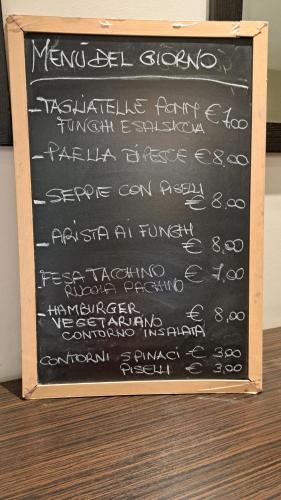 MENÙ DEL GIORNO
- TAGLIATELLE PANNA € 7,00
FUNGHI E SALSICCIA
- PAELLA DI PESCE € 8,00
- SEPPIE CON PISELLI
€ 8,00
- ARISTA AI FUNGHI
€ 8,00
FESA TACCHINO € 7,00
RUCOLA PACHINO
- HAMBURGER € 8,00
VEGETARIANO
CONTORNO INSALATA
CONTORNI SPINACI - € 3,00
PISELLI € 3,00